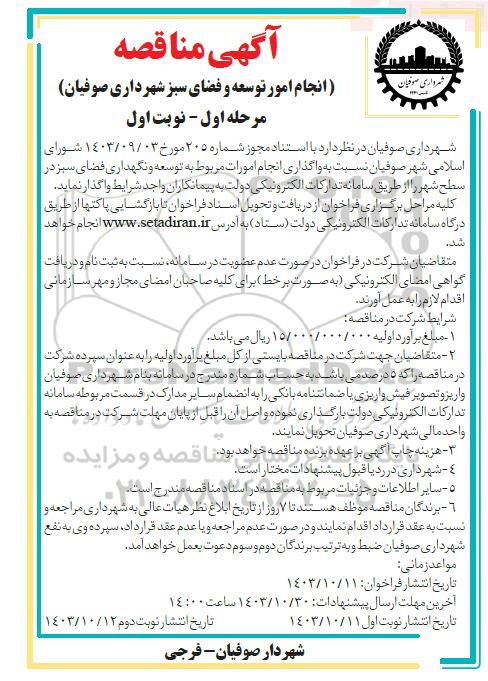 آگهی مناقصه
(انجام امور توسعه و فضای سبز شهرداری صوفیان)
مرحله اول - نوبت اول
شهرداری صوفیان
شهرداری صوفیان در نظر دارد با استناد مجوز شماره ۲۰۵ مورخ ۱۴۰۳/۰۹/۰۳ شورای
اسلامی شهر صوفیان نسبت به واگذاری انجام امورات مربوط به توسعه و نگهداری فضای سبز در
سطح شهر را از طریق سامانه تدارکات الکترونیکی دولت به پیمانکاران واجد شرایط واگذار نماید.
کلیه مراحل برگزاری فراخوان از دریافت و تحویل اسناد فراخوان تا بازگشایی پاکتها از طریق
درگاه سامانه تدارکات الکترونیکی دولت (ستاد) به آدرس www.setadiran.ir انجام خواهد
شد.
متقاضیان شرکت در فراخوان در صورت عدم عضویت در سامانه، نسبت به ثبت نام و دریافت
گواهی امضای الکترونیکی (به صورت برخط) برای کلیه صاحبان امضای مجاز و مهر سازمانی
اقدام لازم را به عمل آورند.
شرایط شرکت در مناقصه:
۱- مبلغ برآورد اولیه ۱۵/۰۰۰/۰۰۰/۰۰۰ ریال می باشد.
۲- متقاضیان جهت شرکت در مناقصه بایستی از کل مبلغ برآورد اولیه را به عنوان سپرده شرکت
در مناقصه را که ۵ درصد می باشد به حساب شماره مندرج در سامانه بنام شهرداری صوفیان
واریز و تصویر فیش واریزی یا ضمانتنامه بانکی را به انضمام سایر مدارک در قسمت مربوطه سامانه
تدارکات الکترونیکی دولت بارگذاری نموده و اصل آن را قبل از پایان مهلت شرکت در مناقصه به
واحد مالی شهرداری صوفیان تحویل نمایند.
۳- هزینه چاپ آگهی بر عهده برنده مناقصه خواهد بود.
۴- شهرداری در رد یا قبول پیشنهادات مختار است.
۵- سایر اطلاعات و جزئیات مربوط به مناقصه در اسناد مناقصه مندرج است.
۶- برندگان مناقصه موظف هستند تا ۷ روز از تاریخ ابلاغ نظر هیات عالی به شهرداری مراجعه و
نسبت به عقد قرارداد اقدام نمایند و در صورت عدم مراجعه و یا عدم عقد قرارداد، سپرده وی به نفع
شهرداری صوفیان ضبط و به ترتیب برندگان دوم و سوم دعوت بعمل خواهد آمد.
مواعد زمانی:
تاریخ انتشار فراخوان: ۱۴۰۳/۱۰/۱۱
آخرین مهلت ارسال پیشنهادات: ۱۴۰۳/۱۰/۳۰ ساعت ۱۴:۰۰
تاریخ انتشار نوبت اول ۱۴۰۳/۱۰/۱۱ تاریخ انتشار نوبت دوم ۱۴۰۳/۱۰/۱۲
شهردار صوفیان - فرجی